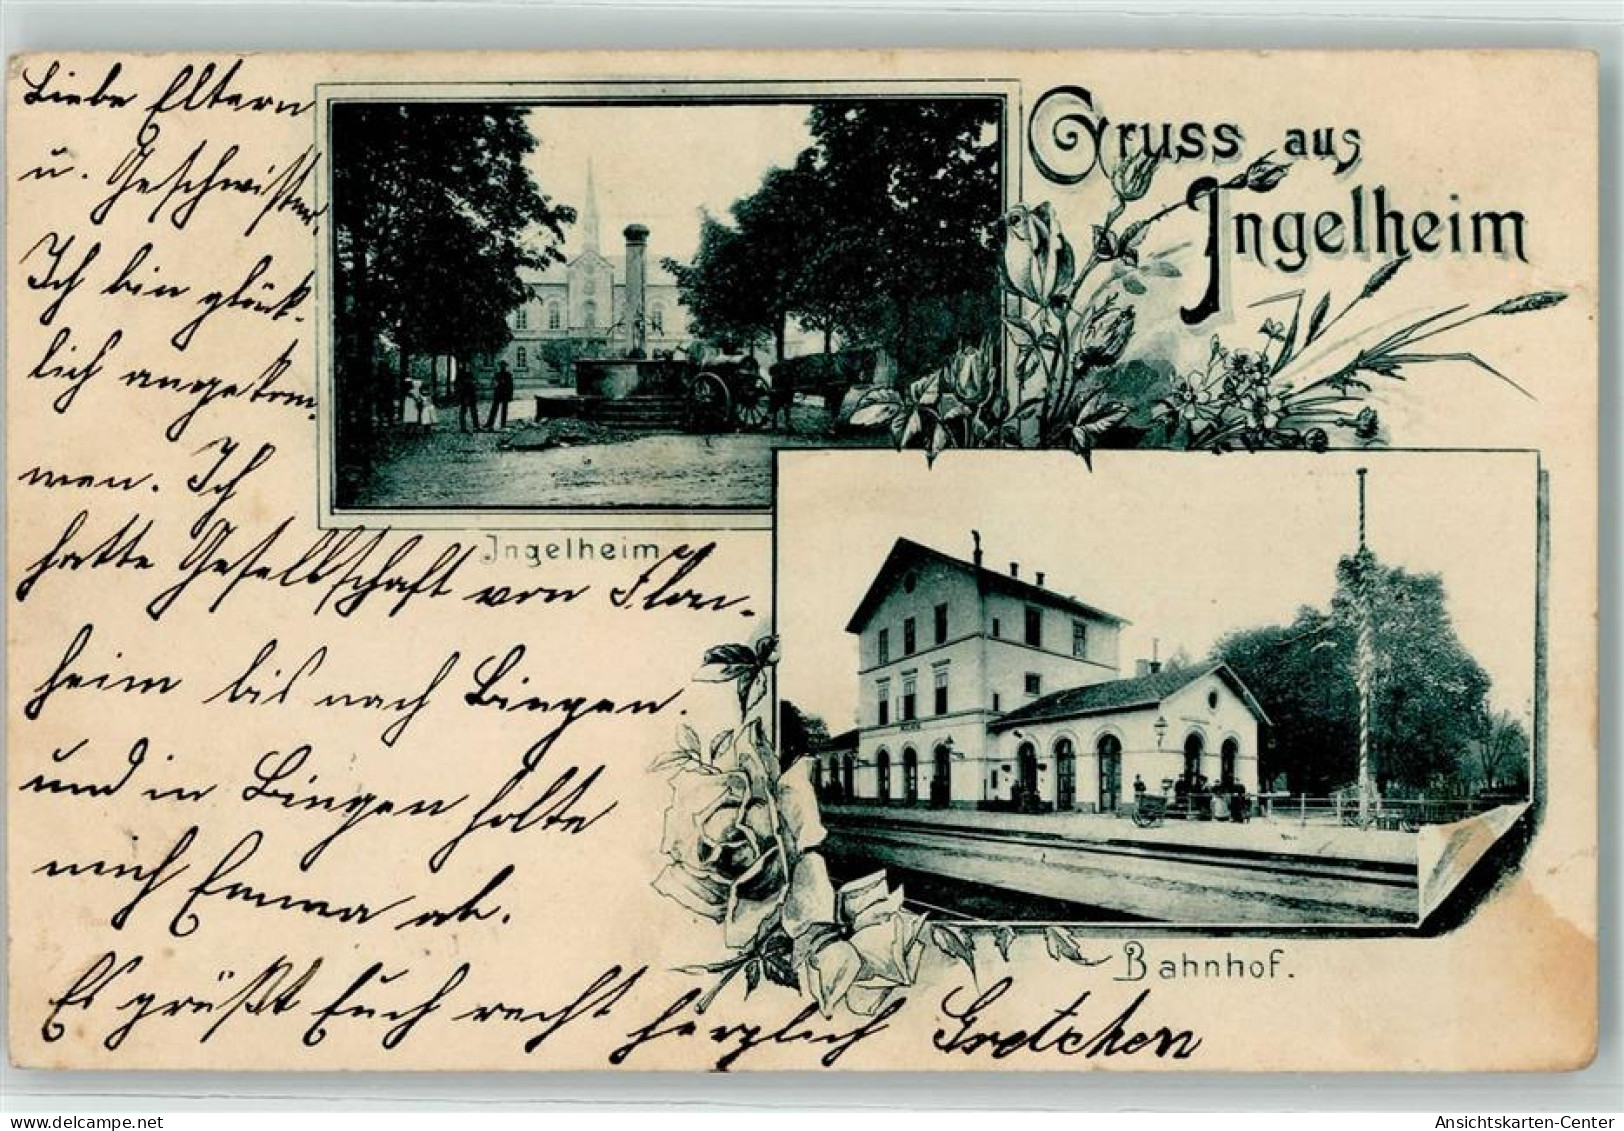 Liebe Eltern
u. Geschwister.
Ich bin glück-
lich angekom-
men. Ich
hatte Gesellschaft von Flon-
heim bis nach Bingen.
und in Bingen holte
mich Emma ab.
Es grüßt Euch recht herzlich Gretchen
Gruss aus
Ingelheim
Ingelheim
Bahnhof.
Ansichtskarten-Center